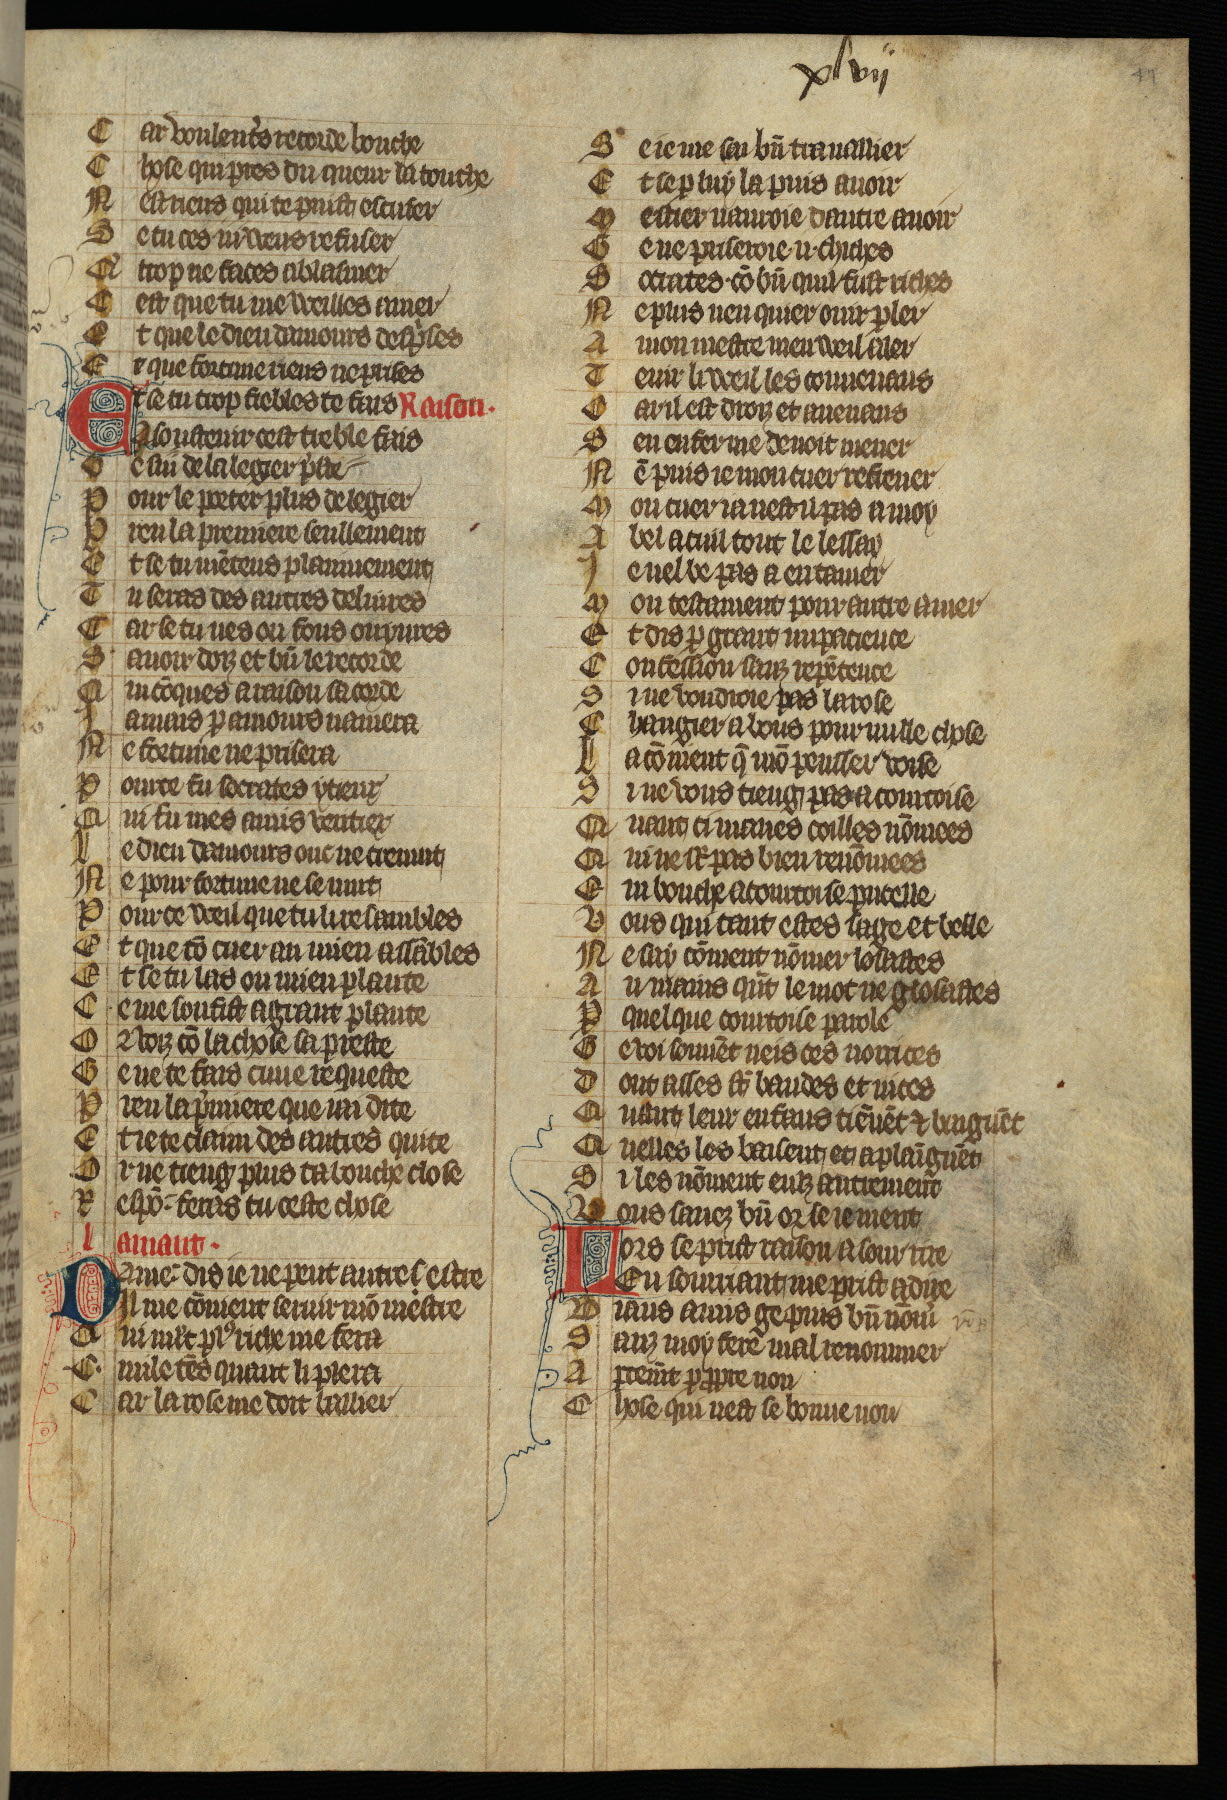 xlvii
47
Car voulent's recorde bouche
Chose qui pres du queur la touche
N est riens qui te puist escuser
Se tu ces iii veus refuser
A trop ne faces ablasmer
C est que tu me weilles amer
Et que le dieu damours despiles
Et que fortune riens ne prises
Et se tu trop fiebles te fais Raison.
A soustenir cest treble fais
Je sui de lalegier p'ste
Pour le porter plus de legier
Pren la premiere seullement
Et se tu mētens plainnement
Tu seras des autres deliures
Car se tu nes ou fous ou yures
Sauoir doiz et bn̄ le recorde
Quicōques a raison sacorde
Jamais p amours namera
Ne fortune ne prisera
Pource fu socrates ytieux
Qui fu mes amis ventier
Le dieu damours onc ne cremut
Ne pour fortune ne se mut
Pource weil que tu li resambles
Et que tō cuer au mien assābles
Et se tu las ou mien plante
Ce me soufist a grant plante
Or voiz cō la chose sapreste
Ge ne te fais cune requeste
Pren la p'miere que iai dite
Et ie te claim des autres quite
Or ne tieng plus ta bouche close
Respō- feras tu ceste chose
Lamant.
Dame- dis ie ne peut autre estre
Il me cōment seruir mō mestre
Qui mlt pl9 riche me fera
C mile tēs quant li plera
Car la rose me doit baillier
Se ie me sai bn̄ trauaillier
Et se p luy la puis auoir
Mestier nauroie dautre auoir
Ge ne priseroie ii chiches
Socrates cō bn̄ quil fust riches
Ne plus nen quier ouir pler
A mon mestre men weil aler
Tenir li weil les conuenans
Car il est droiz et auenans
Sen enfer me deuoit mener
Nē puis ie mon cuer refrener
Mon cuer ia nest il pas a moy
A bel acuil tout le lessay
Je nel be pas a entamer
Mon testament pour autre amer
Et dis p grant impacience
Confession sanz repētence
Si ne voudroie pas la rose
Changier a vous pour nulle chose
La cōment q̄ mō pensser voise
Si ne vous tieng pas a courtoise
Quant ci maues coilles nōmees
Qui ne st pas bien renōmees
En bouche a courtoise pucelle
Vous qui tant estes sage et belle
Ne say cōment nōmer losastes
Au mains qn̄t le mot ne glosastes
P quelque courtoise parole
Ge voi souuēt neis ces norrices
Dont asses st baudes et nices
Quant leur enfans tiēnēt & baignēt
Quelles les baisent et aplaignēt
Si les nōment eulz autrement
Vous sauez bn̄ or se ie ment
Lors se prist raison a sourire
En souriant me prist a dire
Biaus amis ge puis bn̄ nōm̄
Sanz moy fere mal renommer
Aptem̄t p ppre non
Chose qui nest se bonne non